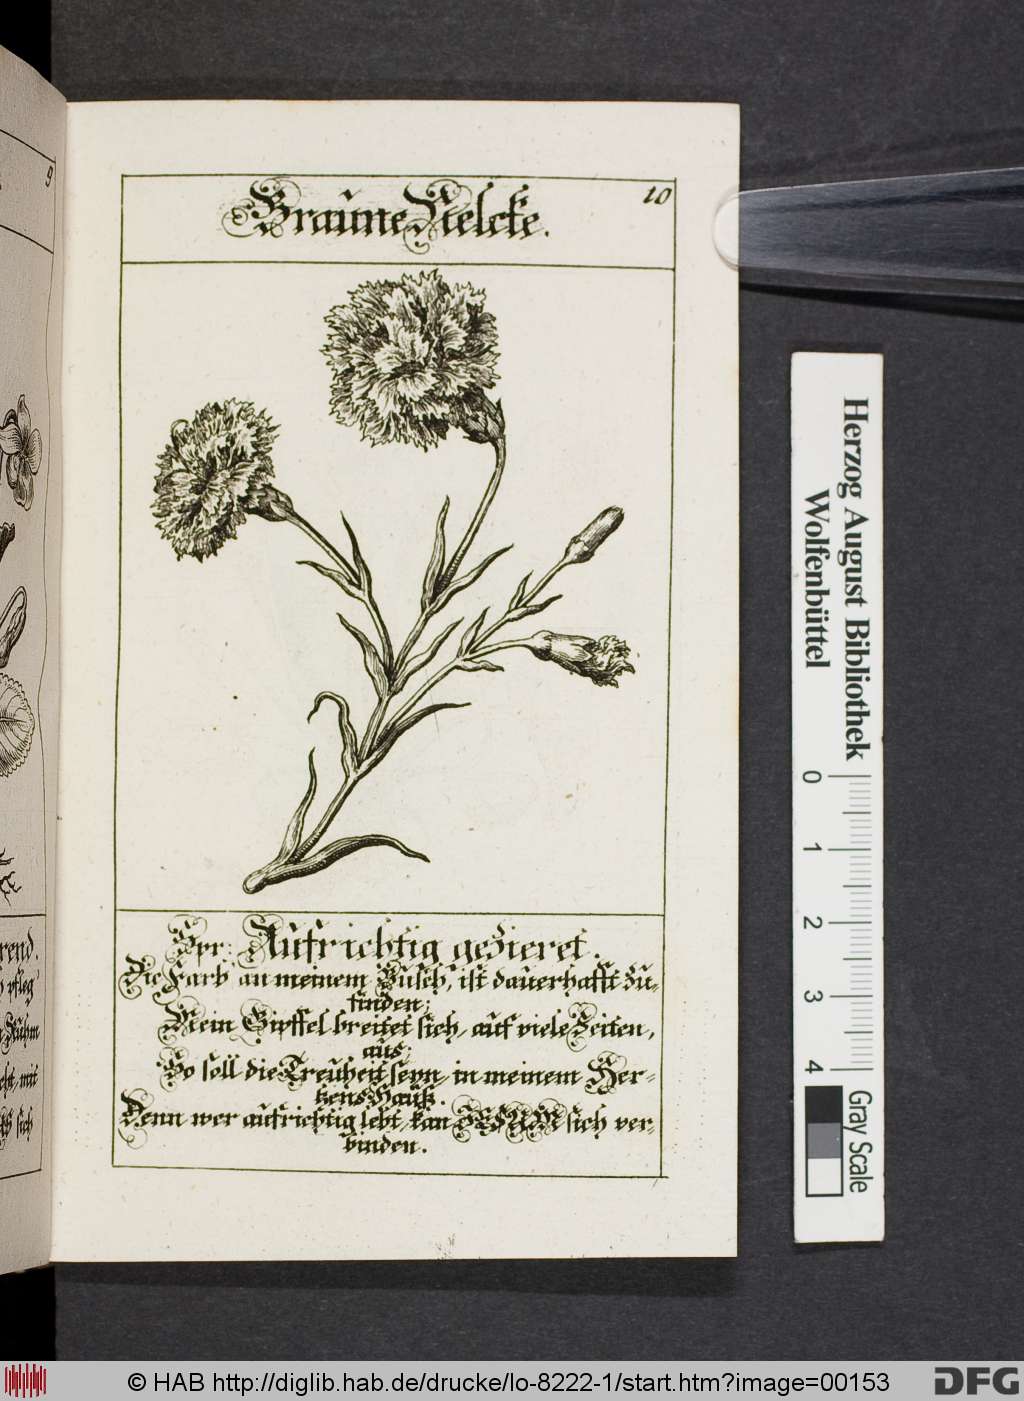 9
10
Braune Nelcke.
Spr: Aufrichtig gezieret.
Die Farb' an meinem Busch, ist dauerhafft zu-
finden;
Mein Gipffel breitet sich, auf viele Zeiten,
aus;
So soll die Treuheit seyn, in meinem Her-
tzens Hauß.
Denn wer aufrichtig lebt, kan JESUM sich ver-
binden.
rend.
pfleg
Ruhm
mit
sich
Herzog August Bibliothek
Wolfenbüttel
0 1 2 3 4
Gray Scale
© HAB http://diglib.hab.de/drucke/lo-8222-1/start.htm?image=00153
DFG